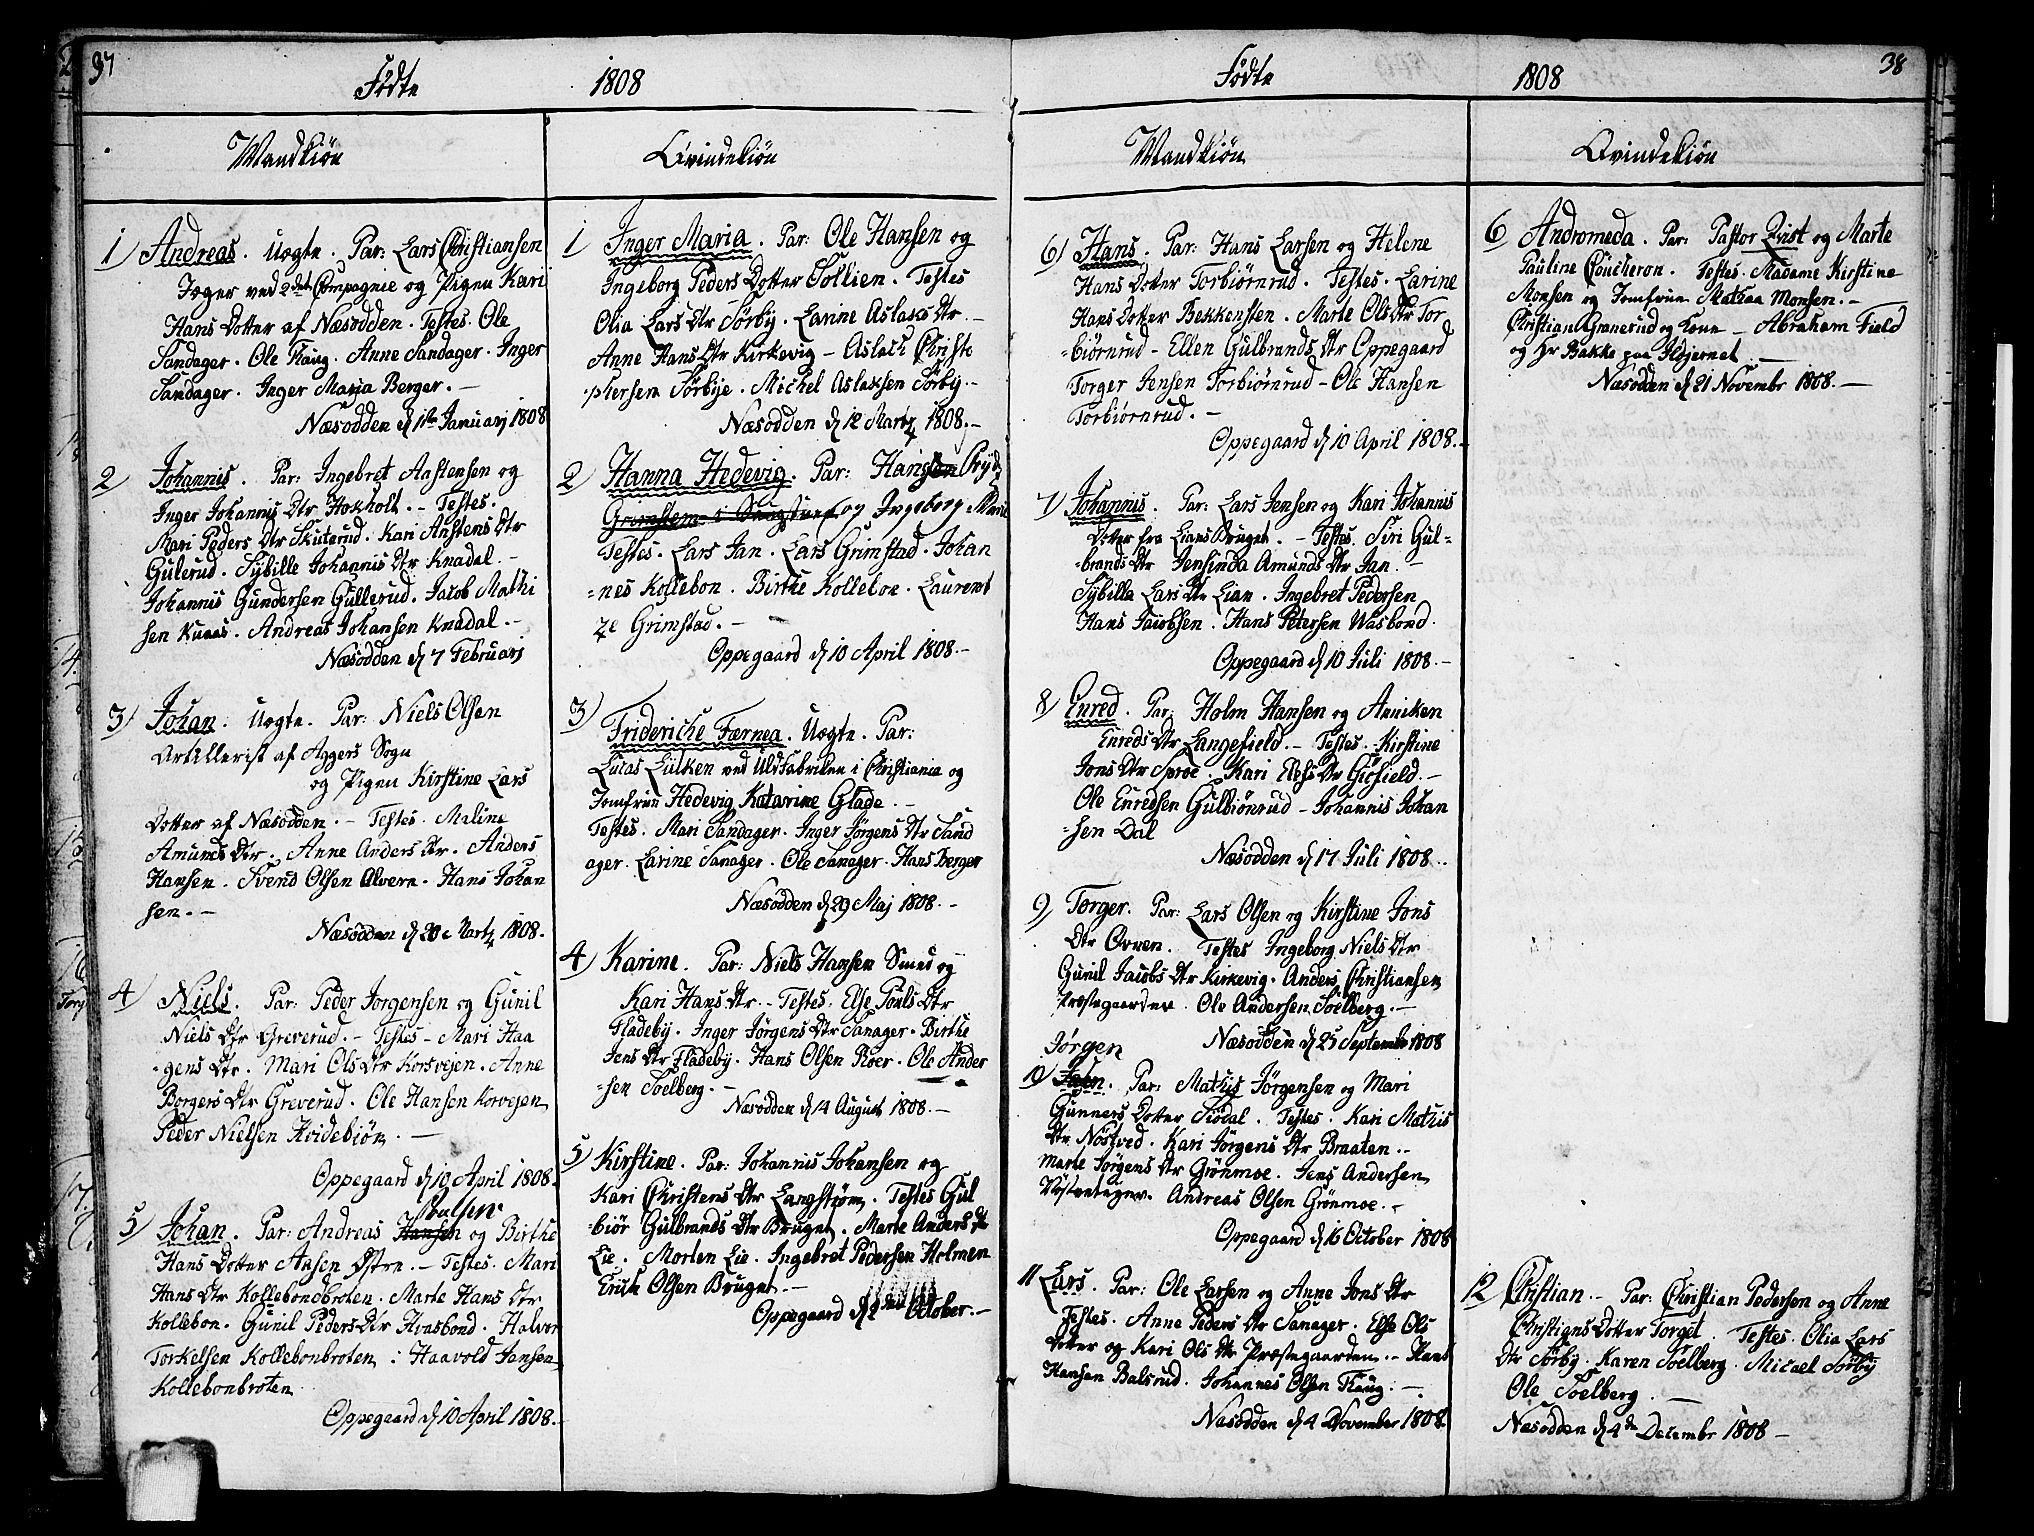 37
Födte 1808
Mandkiön
Qvindekiön
1) Andreas. Uægte. Par: Lars Christiansen
Jæger ved 2det Compagnie og Pigen Kari
Hans Dotter af Næsodden. Testes. Ole
Sandager. Ole Flaug. Anne Sandager. Inger
Sandager. Inger Maria Berger.
Næsodden d 1te Januarj 1808
2) Johannis. Par: Ingebret Aastensen og
Inger Johannis Dtr Hoxholt. - Testes.
Mari Peders Dtr Skuterud. Kari Anstens Dtr
Gulerud. Sybille Johannis Dtr Knadal.
Johannis Gundersen Gullerud. Jacob Mathi
sen Kuaas. Andreas Johansen Knadal. -
Næsodden d 7 Februarj
3) Johan. Uægte. Par: Niels Olsen
Artillerist af Aggers Sogn
og Pigen Kirstine Lars
Dotter af Næsodden. - Testes. Maline
Amunds Dtr. Anne Anders Dtr. Anders
Hansen. Svend Olsen Alvern. Hans Johan
sen. -
Næsodden d 20 Martz 1808.
4) Niels. Par: Peder Jorgensen og Gunil
Niels Dtr Greverud. - Testes - Mari Haa
gens Dtr. Mari Ols Dtr Korsvejen. Anne
Borgers Dtr Greverud. Ole Hansen Korvejen
Peder Nielsen Hvidebiörn. -
Oppegaard d 10 April 1808.
Poulsen
5) Johan. Par: Andreas Hansen og Birthe
Hans Dotter Aasen Östre. - Testes. Mari
Hans Dtr Kollebondbroten. Marte Hans Dtr
Kollebon. Gunil Peders Dtr Hvasbond. Halvor
Torkelsen Kollebonbroten. Haavold Jansen
Kollebonbroten
Oppegaard d 10 April 1808.
1) Inger Maria. Par: Ole Hansen og
Ingeborg Peders Dotter Tollien. Testes
Olia Lars Dtr Sörby. Larine Aslaks Dtr. -
Anne Hans Dtr Kirkevig - Aslach Christo
phersen Sörbye. Michel Aslaksen Sörby.
Næsodden d 12 Martz 1808. -
2) Hanna Hedevig. Par: Hansen Pryds
og Ingeborg Marie
Testes. Lars Jan. Lars Grimstad. Johan
=nes Kollebon. Birthe Kolleboe. Laurent
ze Grimstad. -
Oppegaard d 10 April 1808. -
3) Frideriche Færnea. Uægte. Par:
Lucas Lulken ved Uldfabriken i Christiania og
Jomfrue Hedevig Katarine Glade. -
Testes. Mari Sandager. Inger Jörgens Dtr Sand
ager. Larine Sanager. Ole Sanager. Hans Berger
Næsodden d 29 Maj 1808. -
4) Karine. Par: Niels Hansen Smed og
Kari Hans Dtr. - Testes. Else Pouls Dtr
Fladeby. Inger Jörgens Dtr Sanager. Birthe
Jens Dtr Fladeby. Hans Olsen Roer. Ole Ander
=sen Soelberg. -
Næsodden d 14 August 1808. -
5) Kirstine. Par: Johannis Johansen og
Kari Christens Dtr Langstrøm. Testes Gul
=biör Gulbrands Dtr Bruget. Marte Anders Dr
Lie. Morten Lie. Ingebret Pedersen Holmen
Erick Olsen Bruget. -
Oppegaard d 2den October. -
38
Födte 1808
Mandkiön
Qvindekiön
6) Hans. Par: Hans Larsen og Helene
Hans Dotter Torbiörnrud. Testes. Larine
Hans Dotter Bekkensten. Marte Ols Dtr Tor
=biörnrud - Ellen Gulbrands Dtr Oppegaard
Torger Jensen Torbiörnrud - Ole Hansen
Torbiörnrud. -
Oppegaard d 10 April 1808. -
7) Johannis. Par: Lars Jensen og Kari Johannis
Dotter fra Lians Bruget. - Testes. Siri Gul=
=brands Dtr Jensinda Amunds Dtr Jan. -
Sybilla Lars Dtr Lian. Ingebret Pedersen
Hans Jacobsen. Hans Petersen Wasbond.
Oppegaard d 10 Juli 1808. -
8) Enred. Par: Holm Hansen og Anniken
Enreds Dtr Langefield. - Testes. Kirstine
Jons Dtr Sproe. Kari Elefs Dtr Giöfield. -
Ole Enredsen Gulbiönrud - Johannis Johan
=sen Dal
Næsodden d 17 Juli 1808. -
9) Torger. Par: Lars Olsen og Kirstine Jons
Dtr Ovnen. Testes Ingeborg Niels Dtr
Gunil Jacobs Dtr Kirkevig. Anders Christiansen
Præstegaarden. Ole Andersen Soelberg. -
Næsodden d 25 September 1808
Jörgen
10) Par: Mathis Jörgensen og Mari
Gunners Dotter Siödal. Testes. Kari Mathis
Dtr Nöstved. Kari Jörgens Dtr Braaten. -
Marte Jörgens Dtr Grönmoe. Jens Andersen
Andreas Olsen Grönmoe. -
Oppegaard d 16 October 1808
11 Lars. Par: Ole Larsen og Anne Jons Dtr
Testes. Anne Peders Dtr Sanager. Else Ols
Dotter og Kari Ols Dtr Præstegaarden. - Hans
Hansen Balsrud. Johannes Olsen Flaug. -
Næsodden d 4 November 1808.
6) Andromeda. Par: Pastor Qvist og Marte
Pauline Coucheron. Testes. Madame Kirstine
Monsen og Jomfrue Mathea Monsen. -
Christian Granerud og Kone - Abraham Field
og Hr Bakke paa Ildjernet. -
Næsodden d 21 Novembr 1808. -
12) Christian. - Par: Christian Pedersen og Anne
Christians Dotter Torget. Testes. Olia Lars
Dtr Sörby. Karen Soelberg. Micael Sörby
Ole Soelberg. -
Næsodden d 4de Decembr 1808 -